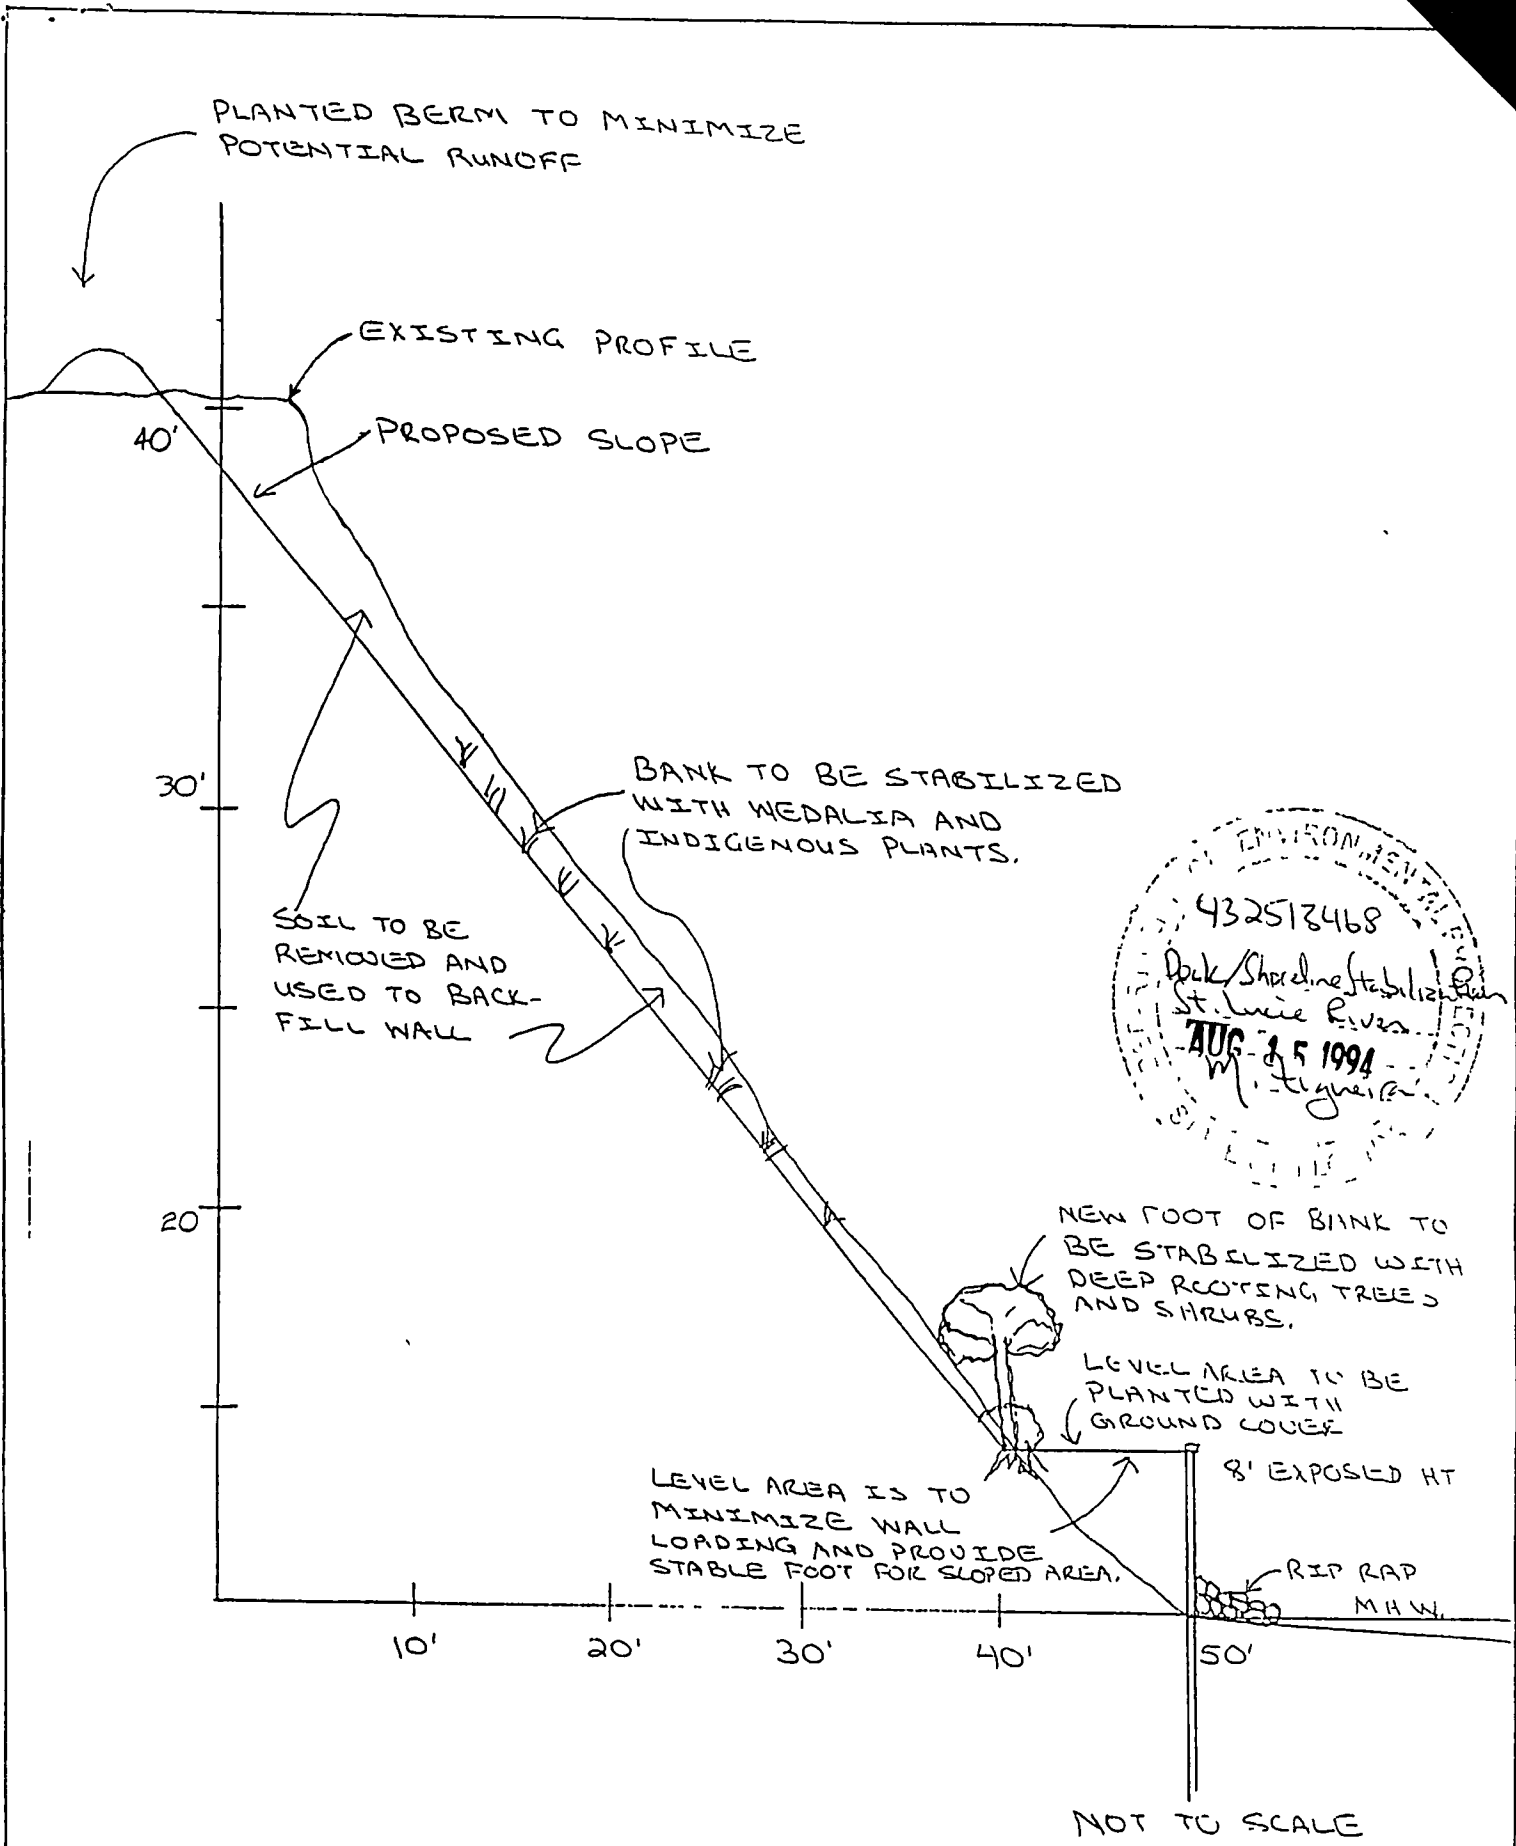 PLANTED BERM TO MINIMIZE
POTENTIAL RUNOFF
EXISTING PROFILE
40'
PROPOSED SLOPE
30'
BANK TO BE STABILIZED
WITH WEDALIA AND
INDIGENOUS PLANTS.
ENVIRONMENTAL
432513468
Dock/Shoreline Stabilization
St. Lucie River
AUG 15 1994
M.
SOIL TO BE
REMOVED AND
USED TO BACK-
FILL WALL
20
NEW FOOT OF BANK TO
BE STABILIZED WITH
DEEP ROOTING TREES
AND SHRUBS.
LEVEL AREA TO BE
PLANTED WITH
GROUND COVER
8' EXPOSED HT
LEVEL AREA IS TO
MINIMIZE WALL
LOADING AND PROVIDE
STABLE FOOT FOR SLOPED AREA.
RIP RAP
M H W.
10'
20'
30'
40'
50'
NOT TO SCALE